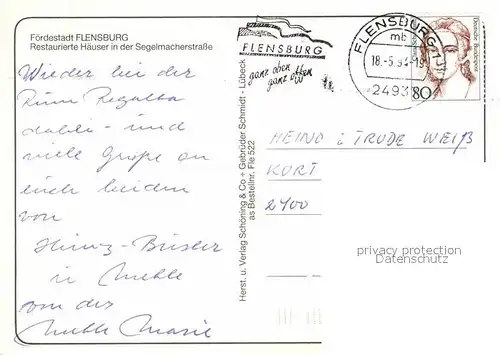 Fördestadt FLENSBURG
Restaurierte Häuser in der Segelmacherstraße
Wieder bei der
Rum Regatta
dabei - und
viele Grüße an
euch beiden
von
Heinz -
u
von der
Marie
Herst. u. Verlag Schöning & Co + Gebrüder Schmidt - Lübeck
as Bestellnr. Fle 522
FLENSBURG
ganz oben
ganz offen
FLENSBURG 1
mb
18.-5.94-19
2493
80
Deutsche Bundespost
HEINO & TRUDE WEIß
KURT
2400
privacy protection
Datenschutz